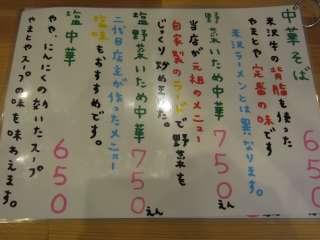 中華そば 650
米沢牛の背脂を使った
やまとや定番の味です
米沢ラーメンとは異なります。
塩野菜いため中華 750えん
当店が元祖のメニュー
自家製のラードで野菜を
じっくり炒めました。
塩野菜いため中華 750えん
二代目店主が作ったメニュー
塩味もおすすめです。
塩中華 650
やや、にんにくの効いたスープ
やまとやスープの味を味わえます。